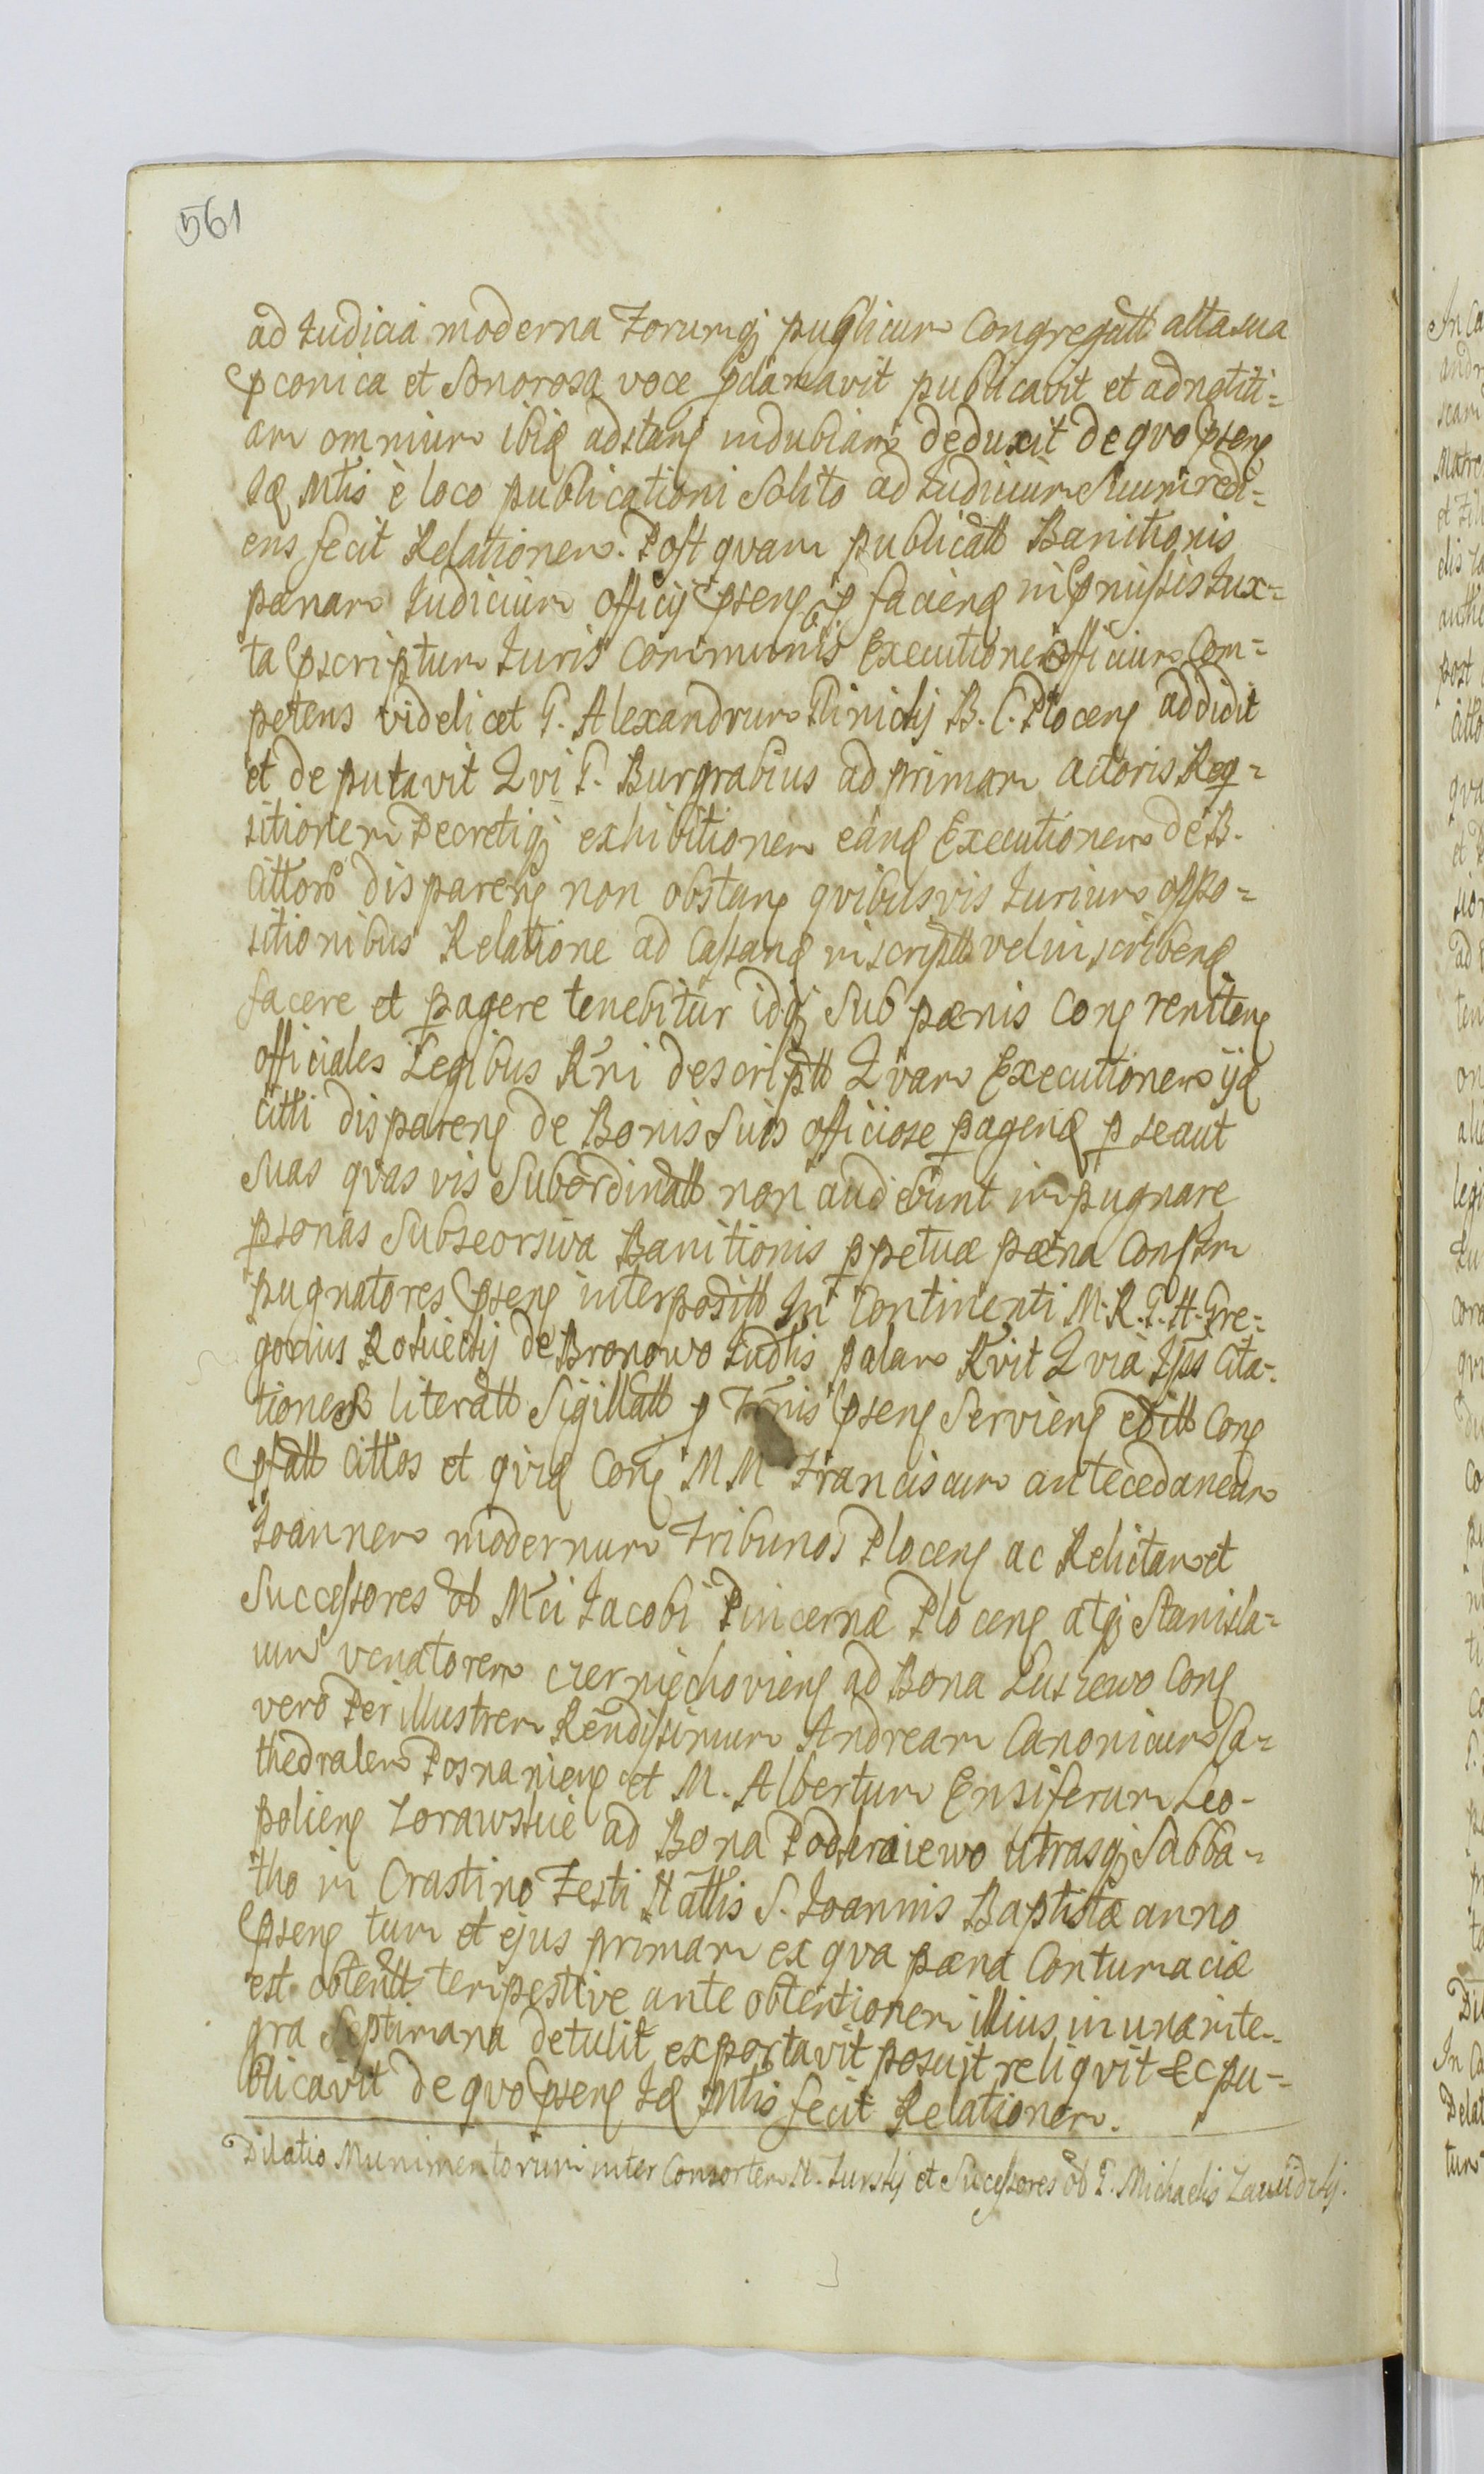 561
ad Judicia moderna Forumq; publicum Congregatt alta sua
pconica et Sonorosa voce pclamavit publicavit et ad notiti=
am omnium ibiq adstang indubiam deduxit de qvo pseng
Idq Mtis è loco publicationi Solito ad Judicium Suum redi=
ens fecit Relationem. Post qvam publicatt Banitionis
pænam Judicium officij pseng faciend in pmissis Jux=
ta pscriptum Juris Communis Executioni officium Com=
petens videlicet G. Alexandrum B. C. Ploceng addidit
et deputavit Qvi G. Burgrabius ad primam actoris Reqq=
sitionem Decretiq; exhibitionem eand Executionem de B.
Cittorũ dispareng non obstang qvibusvis Jurium oppo=
sitionibus Relatione ad Cassand inscriptt vel inscribend
facere et pagere tenebitur idq; Sub pænis Cong reniteng
officiales Legibus Rñi descriptt Qvam Executionem ijd
Citti dispareng de Bonis Suis officiose pagend p se aut
Suas qvasvis Subordinatt non audebunt impugnare
psonas Sub seorsiva Banitionis ppetuæ pæna Con Im
pugnatores pseng interpositt In Continenti M. R. G. H. Gre=
gorius Rosciecki de Bronowo Judlis palam Rvit Qvia Ips Cita=
tiones literatt Sigillatt p pseng Servieng editt Cong
pfatt Cittos et qvid Cong M M Franciscum antecedaneum
Joannem modernum Tribunos Ploceng ac Relictam et
Successores ol Mci Jacobi Pincernæ Ploceng atq; Stanisla=
um venatorem czerniechovieng ad Bona Luszewo Cong
vero Per illustrem Rendissimum Andream Canonicum Ca=
thedralem Posnanieng et M. Albertum Ensiferum Leo=
polieng Zorawskie ad Bona Utrasq; Sabba=
tho in Crastino Festi Nattis S. Joannis Baptistæ anno
pseng tum et ejus primam ex qva pæna Contumaciæ
est obtentt tempestive ante obtentionem illius in una inte=
gra Septimana detulit exportavit posuit reliqvit &c pu=
blicavit de qvo pseng Id Mtis fecit Relationem.
Dilatio Munimentorum inter Consortem N. Turski et Successores ol G. Michaelis